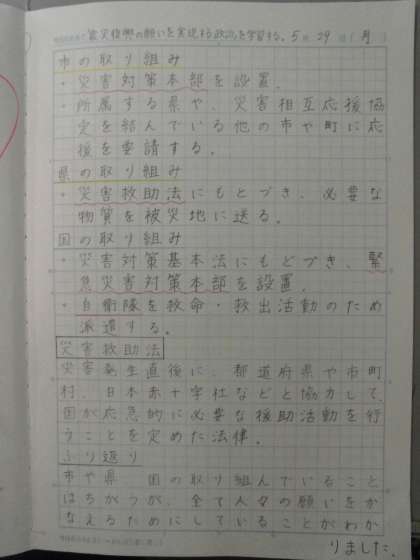 震災復興の願いを実現する政治を学習する。 5月29日(月)
市の取り組み
・災害対策本部を設置.
・所属する県や、災害相互応援協
定を結んでいる他の市や町に応
援を要請する.
県の取り組み
・災害救助法にもとづき、必要な
物質を被災地に送る.
国の取り組み
・災害対策基本法にもどづき、緊
急災害対策本部を設置.
・自衛隊を救命・救出活動のため
派遣する.
災害救助法
災害発生直後に、都道府県や市町
村、日本赤十字社などと協力して、
国が応急的に必要な援助活動を行
うことを定めた法律.
ふり返り
市や県 国の取り組んでいること
はちがうが、全て人々の願いをか
なえるためにしていることがわか
りました.